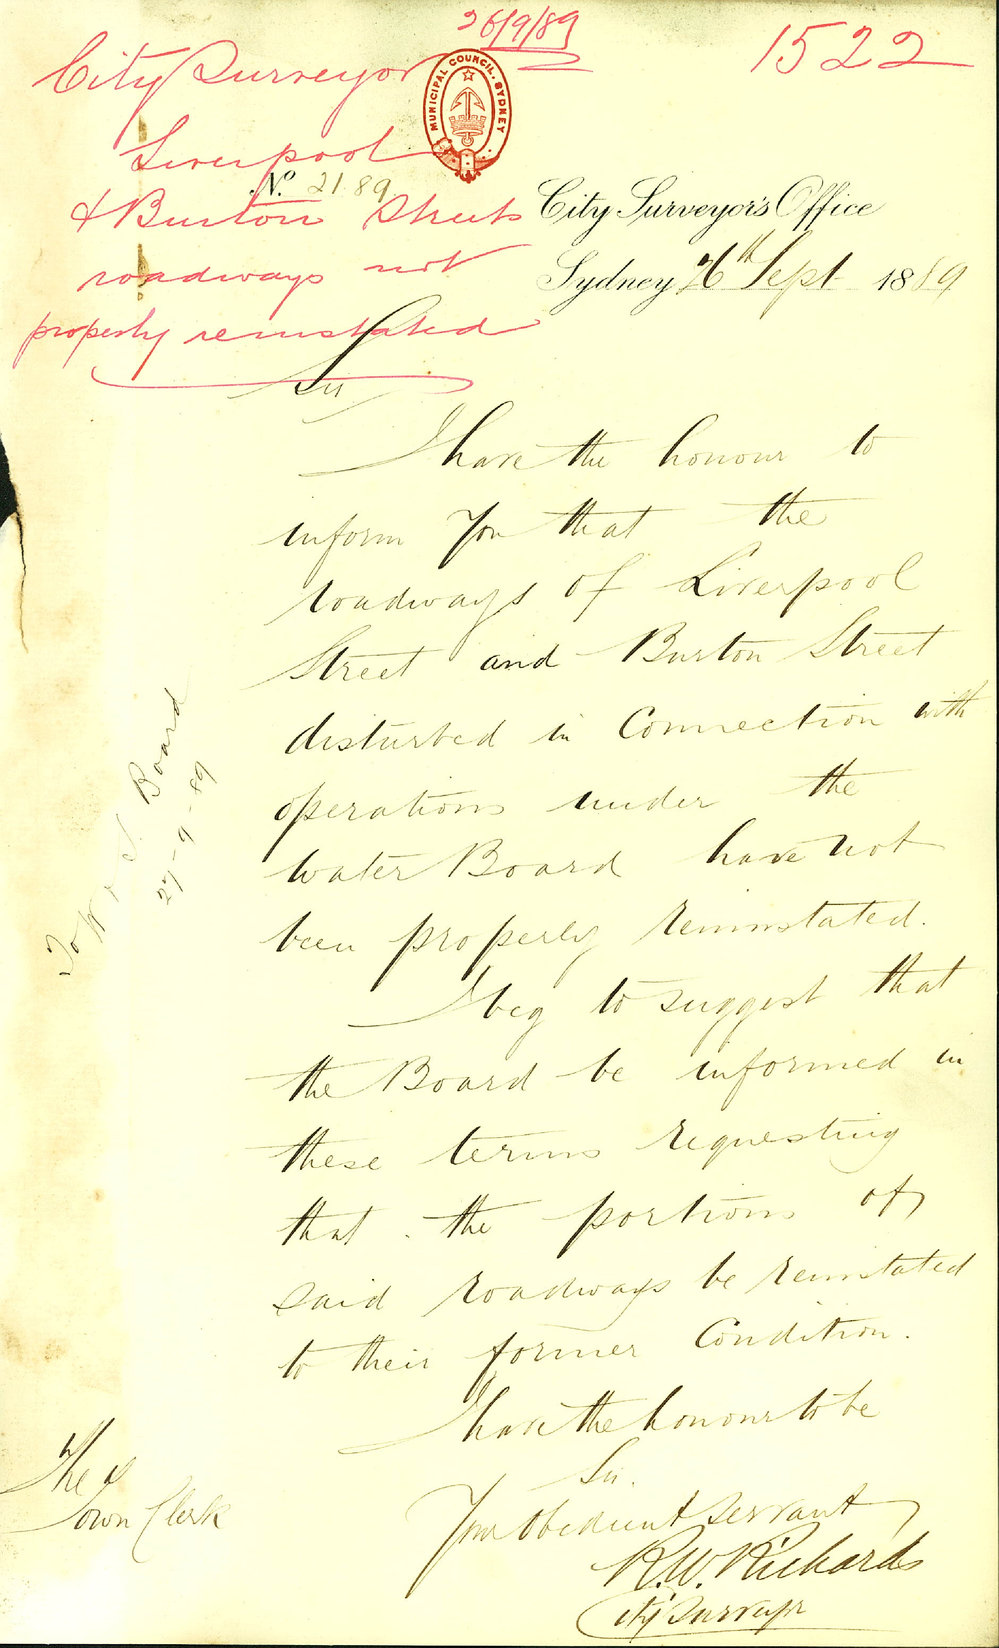 26/9/89
1522
City Surveyor
Liverpool
& Burton Streets
roadways not
properly reinstated
MUNICIPAL COUNCIL. SYDNEY
No. 2189
City Surveyor's Office
Sydney 26th Sept 1889
Sir
I have the honour to
inform you that the
roadways of Liverpool
Street and Burton Street
disturbed in Connection with
operations under the
water Board have not
been properly reinstated.
I beg to suggest that
the Board be informed in
these terms requesting
that the portions of
said roadways be reinstated
to their former Condition.
I have the honour to be
Sir.
Your obedient servant
R.W. Richards
City Surveyor
To W & S. Board
27-9-89
The
Town Clerk